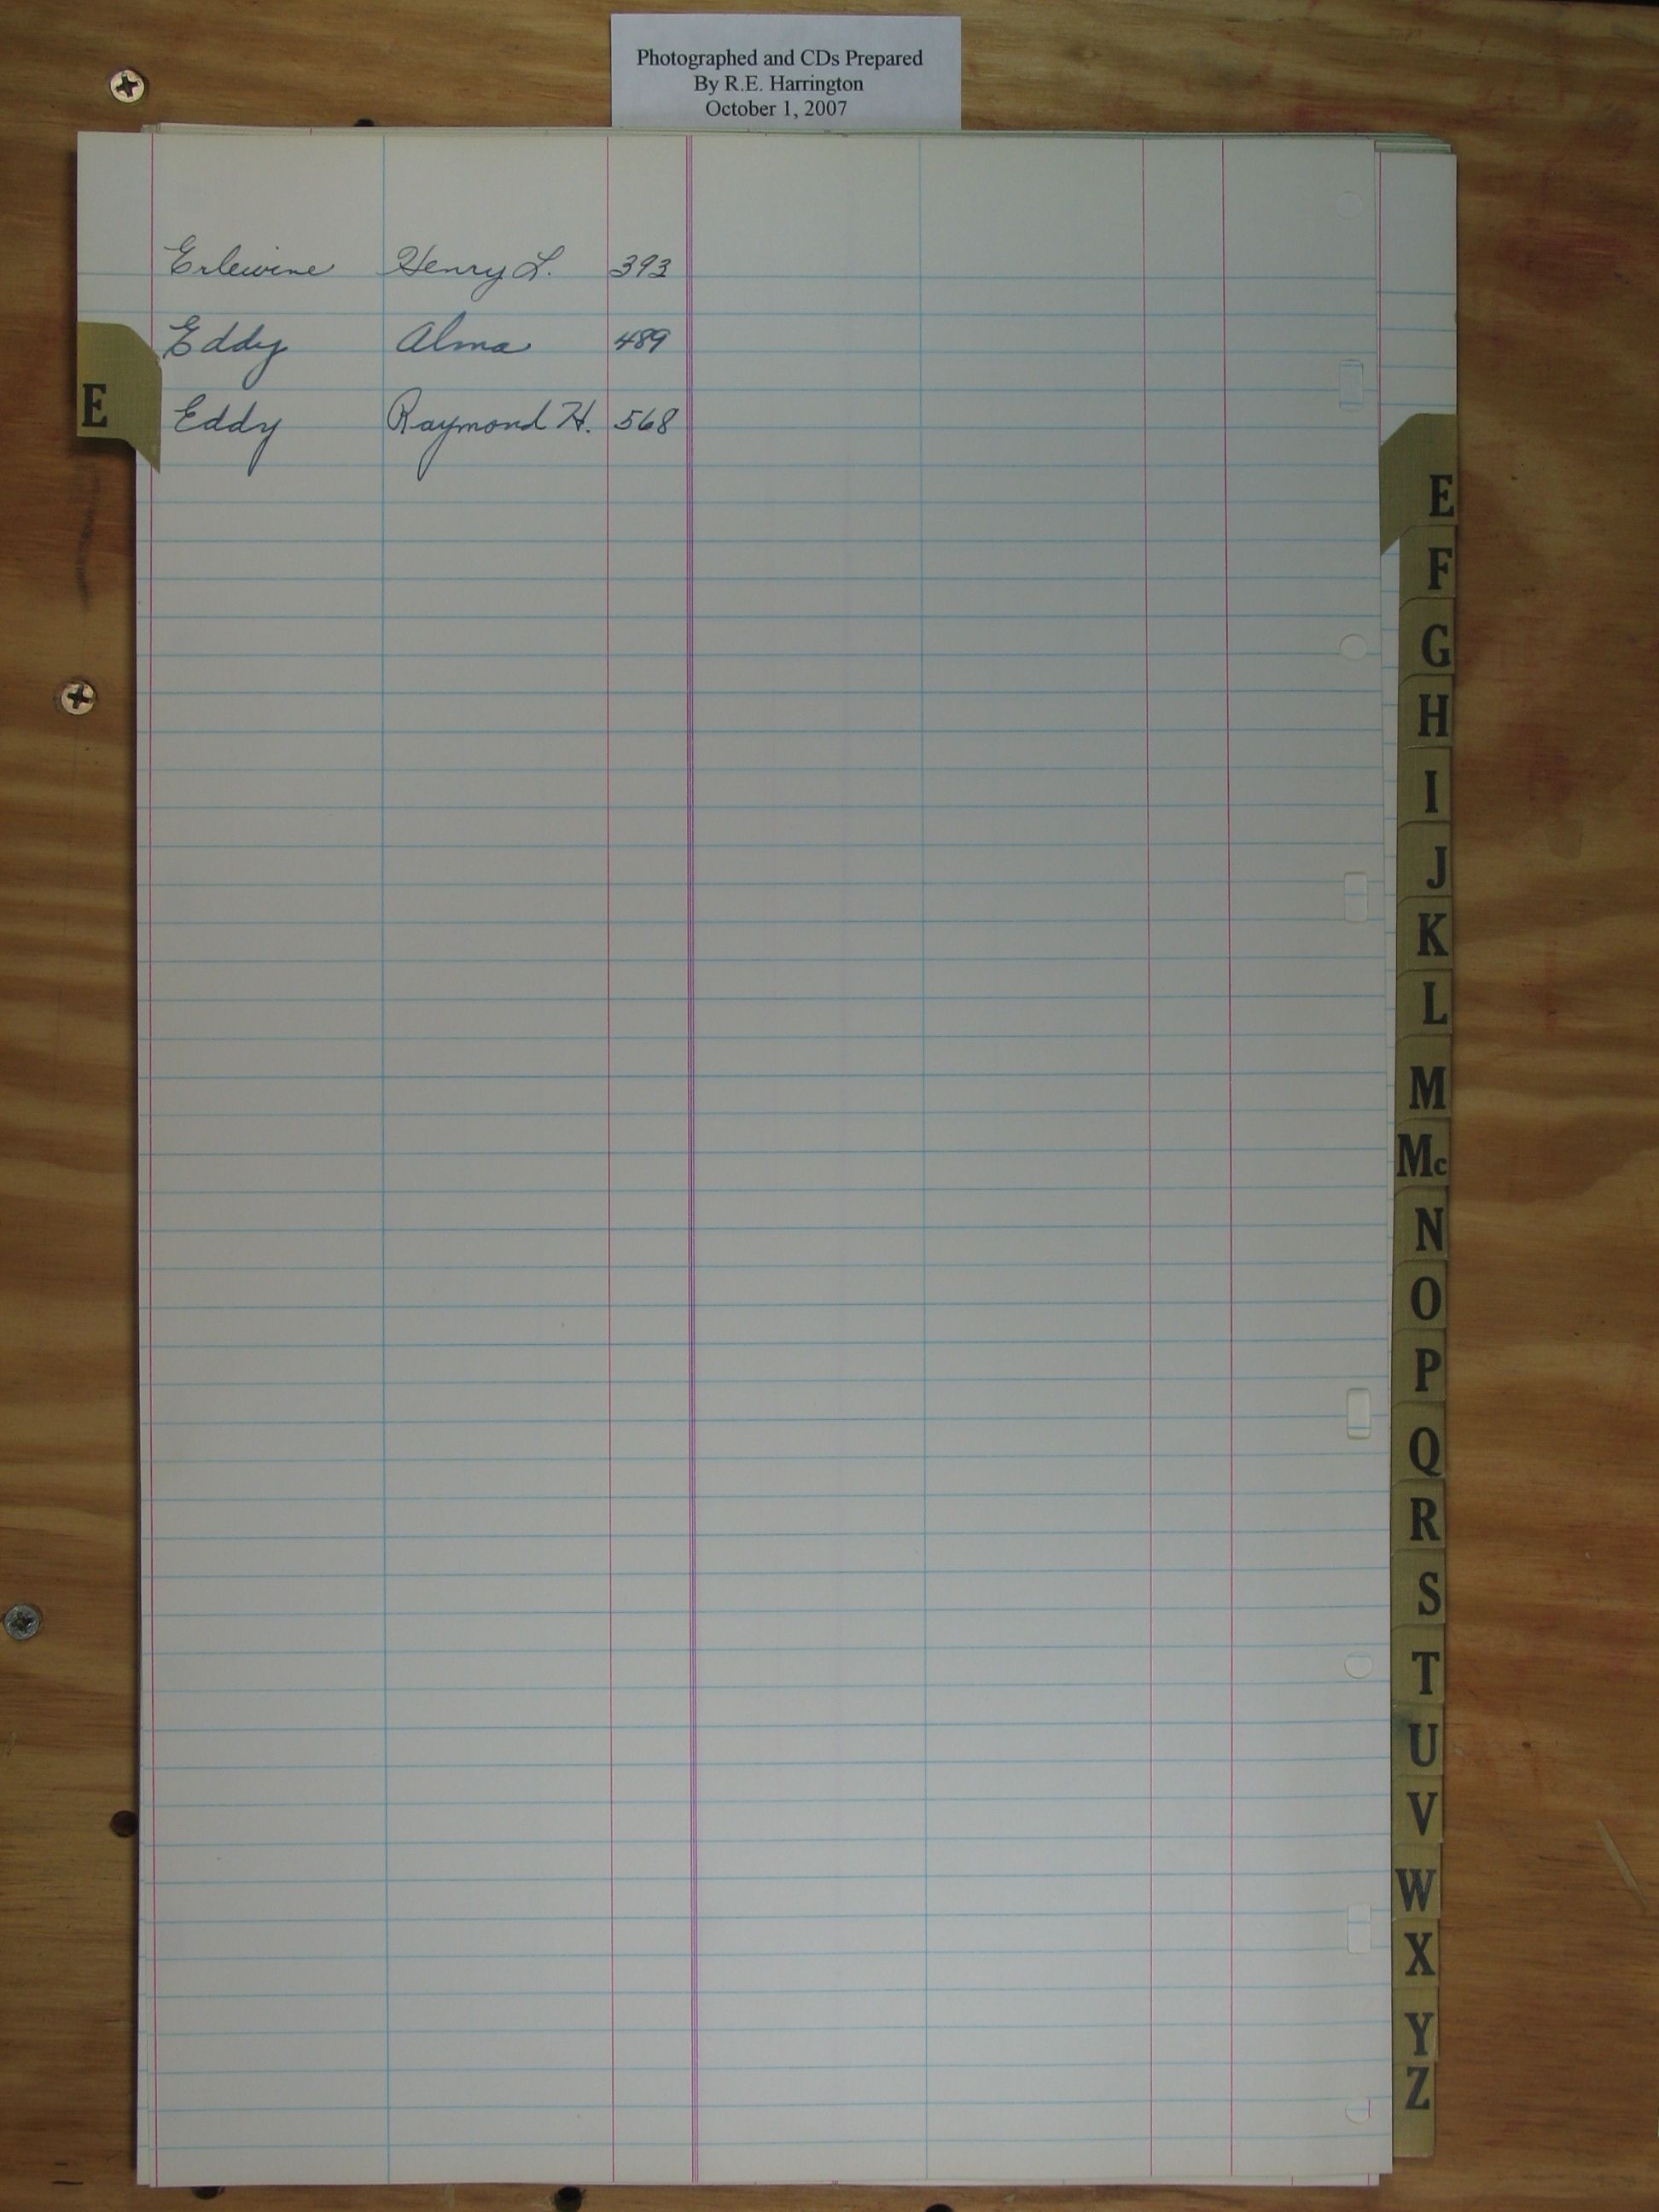 Photographed and CDs Prepared
By R.E. Harrington
October 1, 2007
Erlewine Henry L. 393
Eddy Alma 489
Eddy Raymond H. 568
E
E
F
G
H
I
J
K
L
M
Mc
N
O
P
Q
R
S
T
U
V
W
X
Y
Z